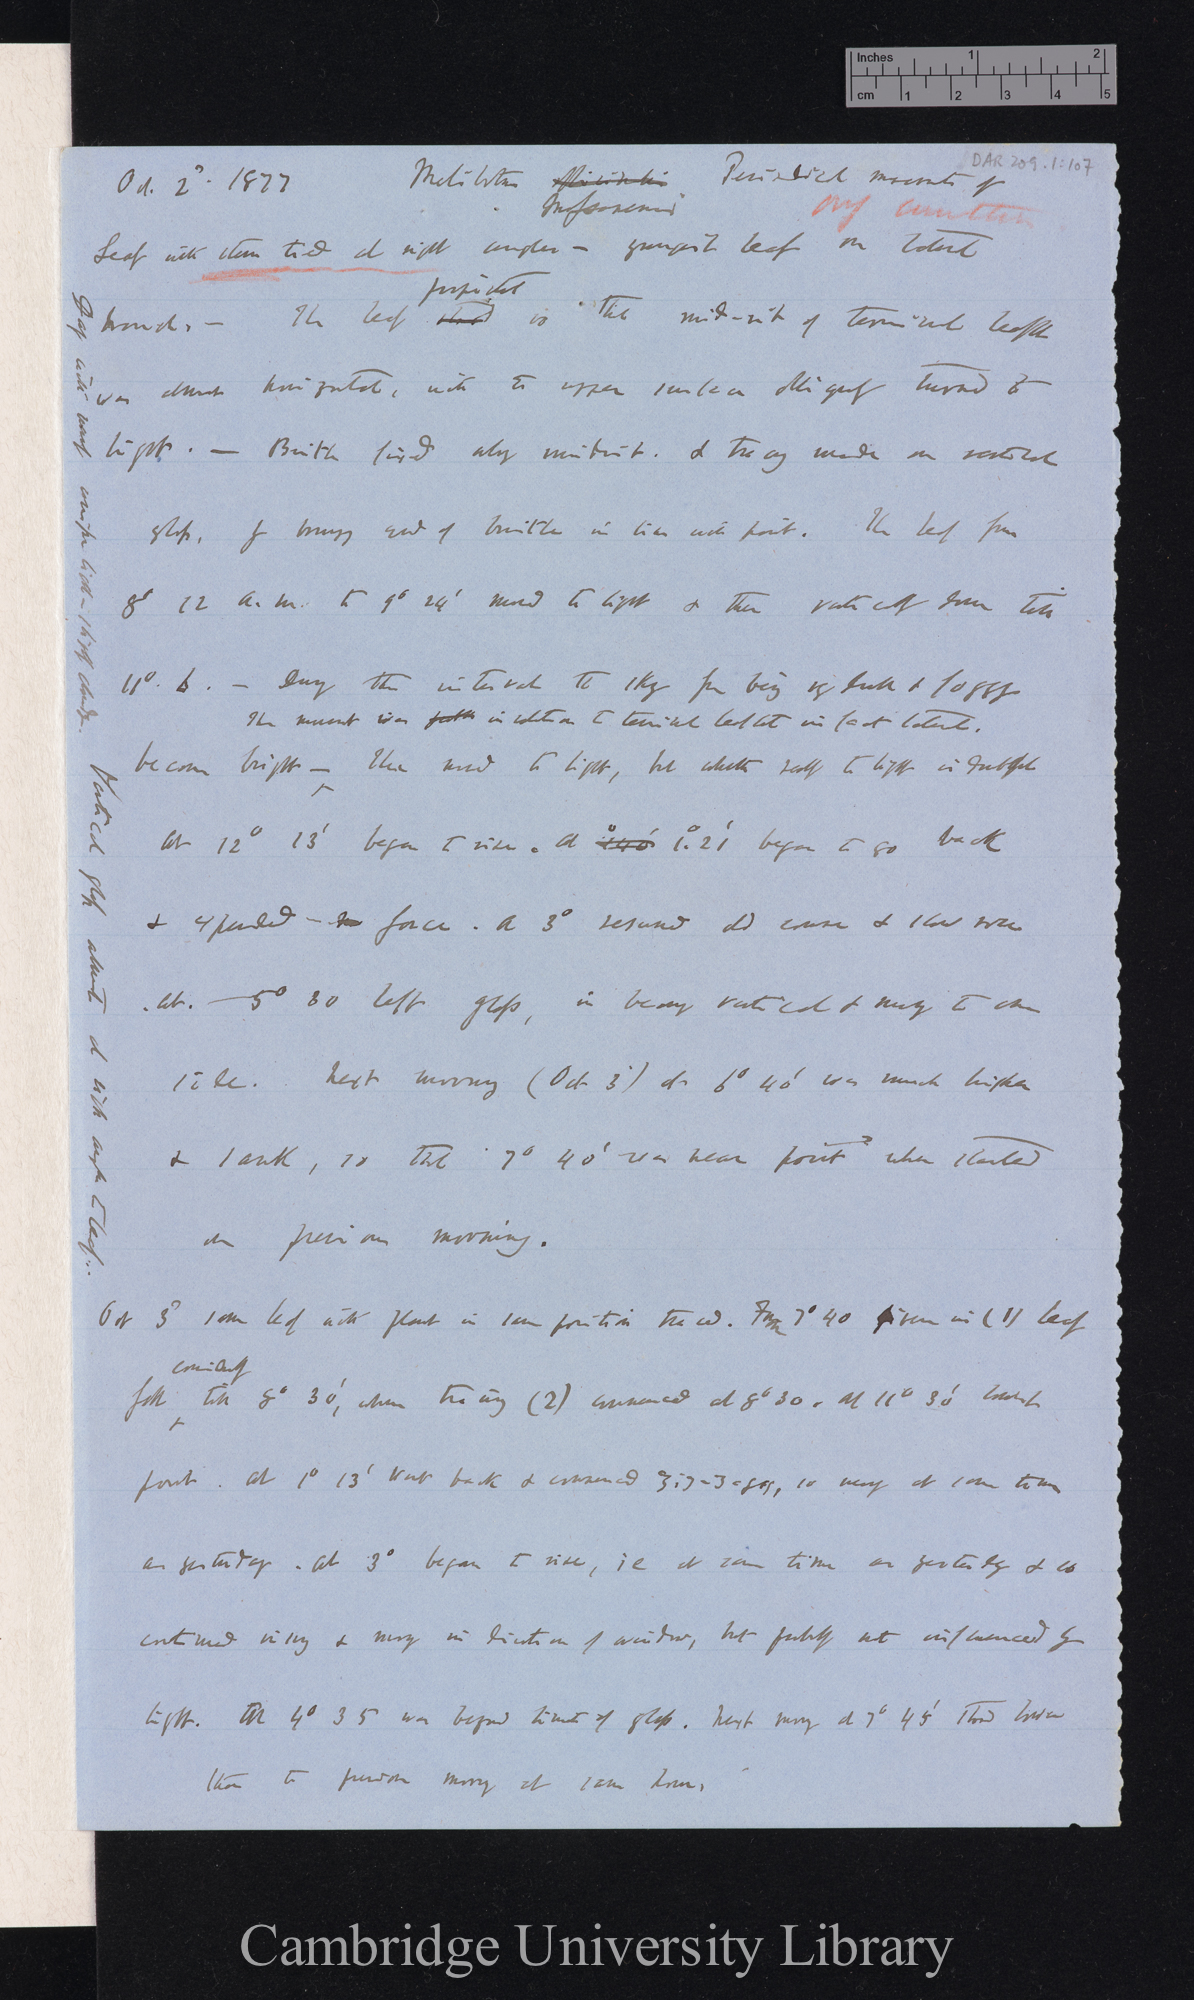 Inches 1 2
cm 1 2 3 4 5
DAR 209.1:107
Oct. 2d. 1877 Melilotus officinalis Periodical movements of
Leaf with stem tied at right angles — youngest leaf on lateral
project
branch. — The leaf is the mid-rib of terminal leaflet
was almost horizontal, with the upper surface obliquely turned to
light. — Bristle fixed along midrib. & tracing made on vertical
glass, by bringing end of bristle in line with point. The leaf from
8° 12 a.m. to 9° 24' moved to light & then vertically down till
11°. — During this interval the sky from being very dull & foggy
The movement was in relation to terminal leaflet in fact lateral.
became bright — then moved to light, but whether really to light is doubtful
At 12° 13' began to rise. at 1°. 21' began to go back
& force. At 3° resumed old course & rose
at. — 5° 30 left glass, in being vertical & moving to one
side. Next morning (Oct 3d) at 6° 40' was much higher
& sank, so that 7° 40' was near point when started
on previous morning.
Oct 3d same leaf with plant in same position traced. From 7° 40 given in (1) leaf
considerably
fell till 8° 30', when tracing (2) commenced at 8° 30. At 11° 30' lowest
point. At 1° 13' went back & commenced zig-zag, so very at same time
as yesterday. At 3° began to rise, ie at same time as yesterday & so
continued rising & moving in direction of window, but probably not influenced by
light. At 4° 35 was beyond limit of glass. Next morning at 7° 45' stood lower
than the previous morning at same hour.
Vertical glass almost at right angles to leaf.